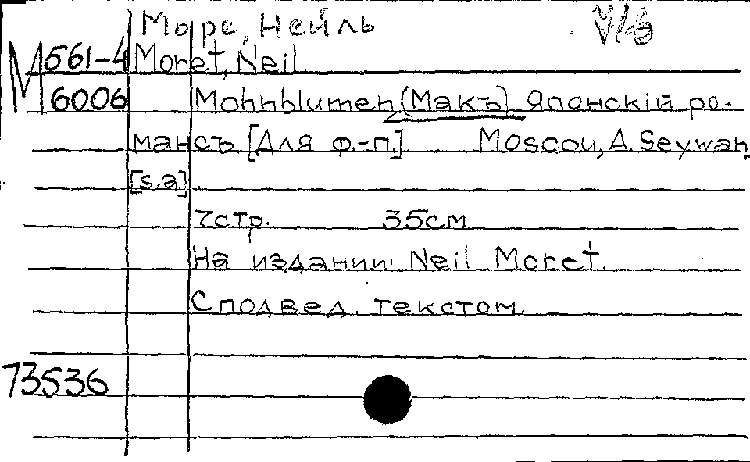 Море, Нейль V/6
М 561-4 Moret, Neil
6006 Mohnblumen (Макъ) Японскій ро-
мансъ [Для ф.-п.] Moscou, A. Seywang
[s.a]
7стр. 35см
На издании: Neil Moret.
С подвед. текстом
73536